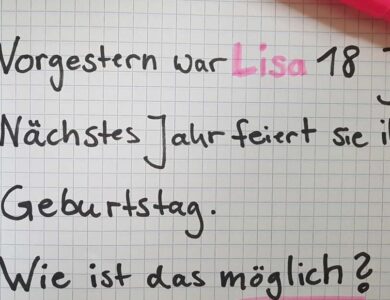 Vorgestern war Lisa 18
Nächstes Jahr feiert sie
Geburtstag.
Wie ist das möglich?